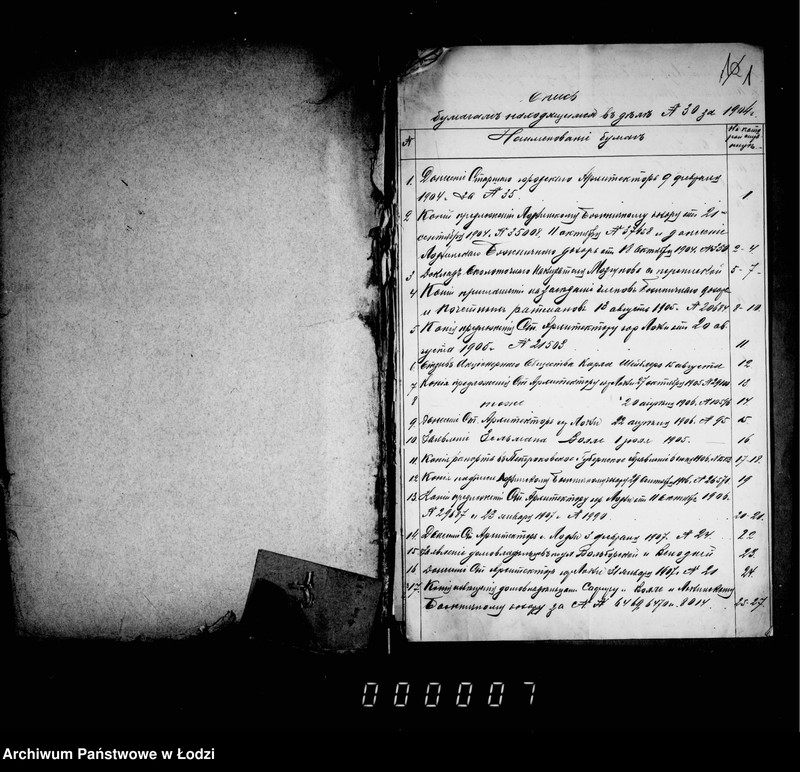 1
Опись
бумагамъ находящимся въ дѣлѣ № 30 за 1904 г.
№ Наименованіе бумагъ На какихъ листахъ
1. Донесеніе Старшаго городского Архитектора 9 февраля
1904 г. за № 35. 1
2. Копія предложенія Лодзинскому Божничному дозору отъ 21
сентября 1904 г. № 35008, 11 октября № 37458 и донесеніе
Лодзинскаго Божничнаго дозора отъ 18 октября 1904 г. 2-4
3 Докладъ съ перепиской 5-7
4 Копія приглашенія на засѣданіе членовъ Божничнаго дозора
и почетныхъ ратмановъ 13 августа 1905 г. № 20684 8-10
5 Копія предложенія Ст. Архитектору гор. Лодзи отъ 20 ав-
густа 1905 г. № 21503 11
6 Отзывъ Акціонернаго Общества Карла Шейблера августа 12
7 Копія предложенія Ст. Архитектору гор. Лодзи 27 октября 1905 13
8 тоже 20 апрѣля 1906 14
9. Донесеніе Ст. Архитектора гор. Лодзи 22 апрѣля 1906 г. № 95 15
10. Заявленіе Зельмана 1 1905. 16
11. Копія рапорта въ Петроковское Губернское Правленіе 1906 17-18
12. Копія надписи Лодзинскому Божничному дозору 29 сентября 1906 г. № 26578 19
13. Копія предложенія Ст. Архитектору гор. Лодзи отъ 11 октября 1906.
№ 27687 и 23 января 1907 г. № 1990. 20-21
14. Донесеніе Ст. Архитектора г. Лодзи 5 февраля 1907. № 24. 22
15. Заявленіе домовладѣльцевъ и 23
16. Донесеніе Ст. Архитектора гор. Лодзи 31 января 1907 г. № 20 24
17. Копія домовладѣльцамъ и и Лодзинскому
Божничному дозору за № № 6469, 6470 и 8014. 25-27.
000007
Archiwum Państwowe w Łodzi